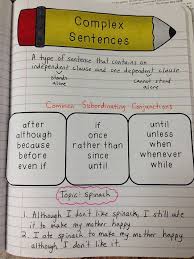 Complex
Sentences
A type of sentence that contains an
independent clause and one dependent clause
stands
alone
cannot stand
alone
Common Subordinating Conjunctions
after
although
because
before
even if
if
once
rather than
since
until
until
unless
when
whenever
while
Topic: spinach
1. Although I don't like spinach, I still ate
it to make my mother happy.
2. I ate spinach to make my mother happy
although I don't like it.